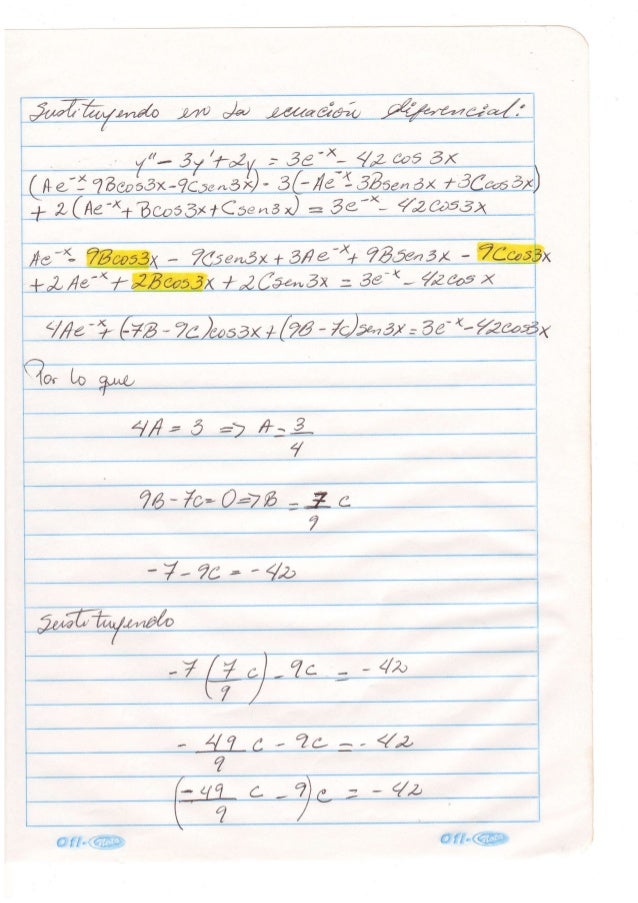 Sustituyendo en la ecuación diferencial:
y'' - 3y' + 2y = 3e^-x - 42 cos 3x
(Ae^-x - 9Bcos3x - 9Csen3x) - 3(-Ae^-x - 3Bsen3x + 3Ccos3x)
+ 2(Ae^-x + Bcos3x + Csen3x) = 3e^-x - 42cos3x
Ae^-x - 9Bcos3x - 9Csen3x + 3Ae^-x + 9Bsen3x - 9Ccos3x
+ 2Ae^-x + 2Bcos3x + 2Csen3x = 3e^-x - 42cos x
4Ae^-x + (-7B - 9C)cos3x + (9B - 7C)sen3x = 3e^-x - 42cos3x
Por lo que
4A = 3 => A = 3/4
9B - 7C = 0 => B = 7/9 C
-7 - 9C = -42
Sustituyendo
-7(7/9 C) - 9C = -42
-49/9 C - 9C = -42
(-49/9 C - 9)C = -42